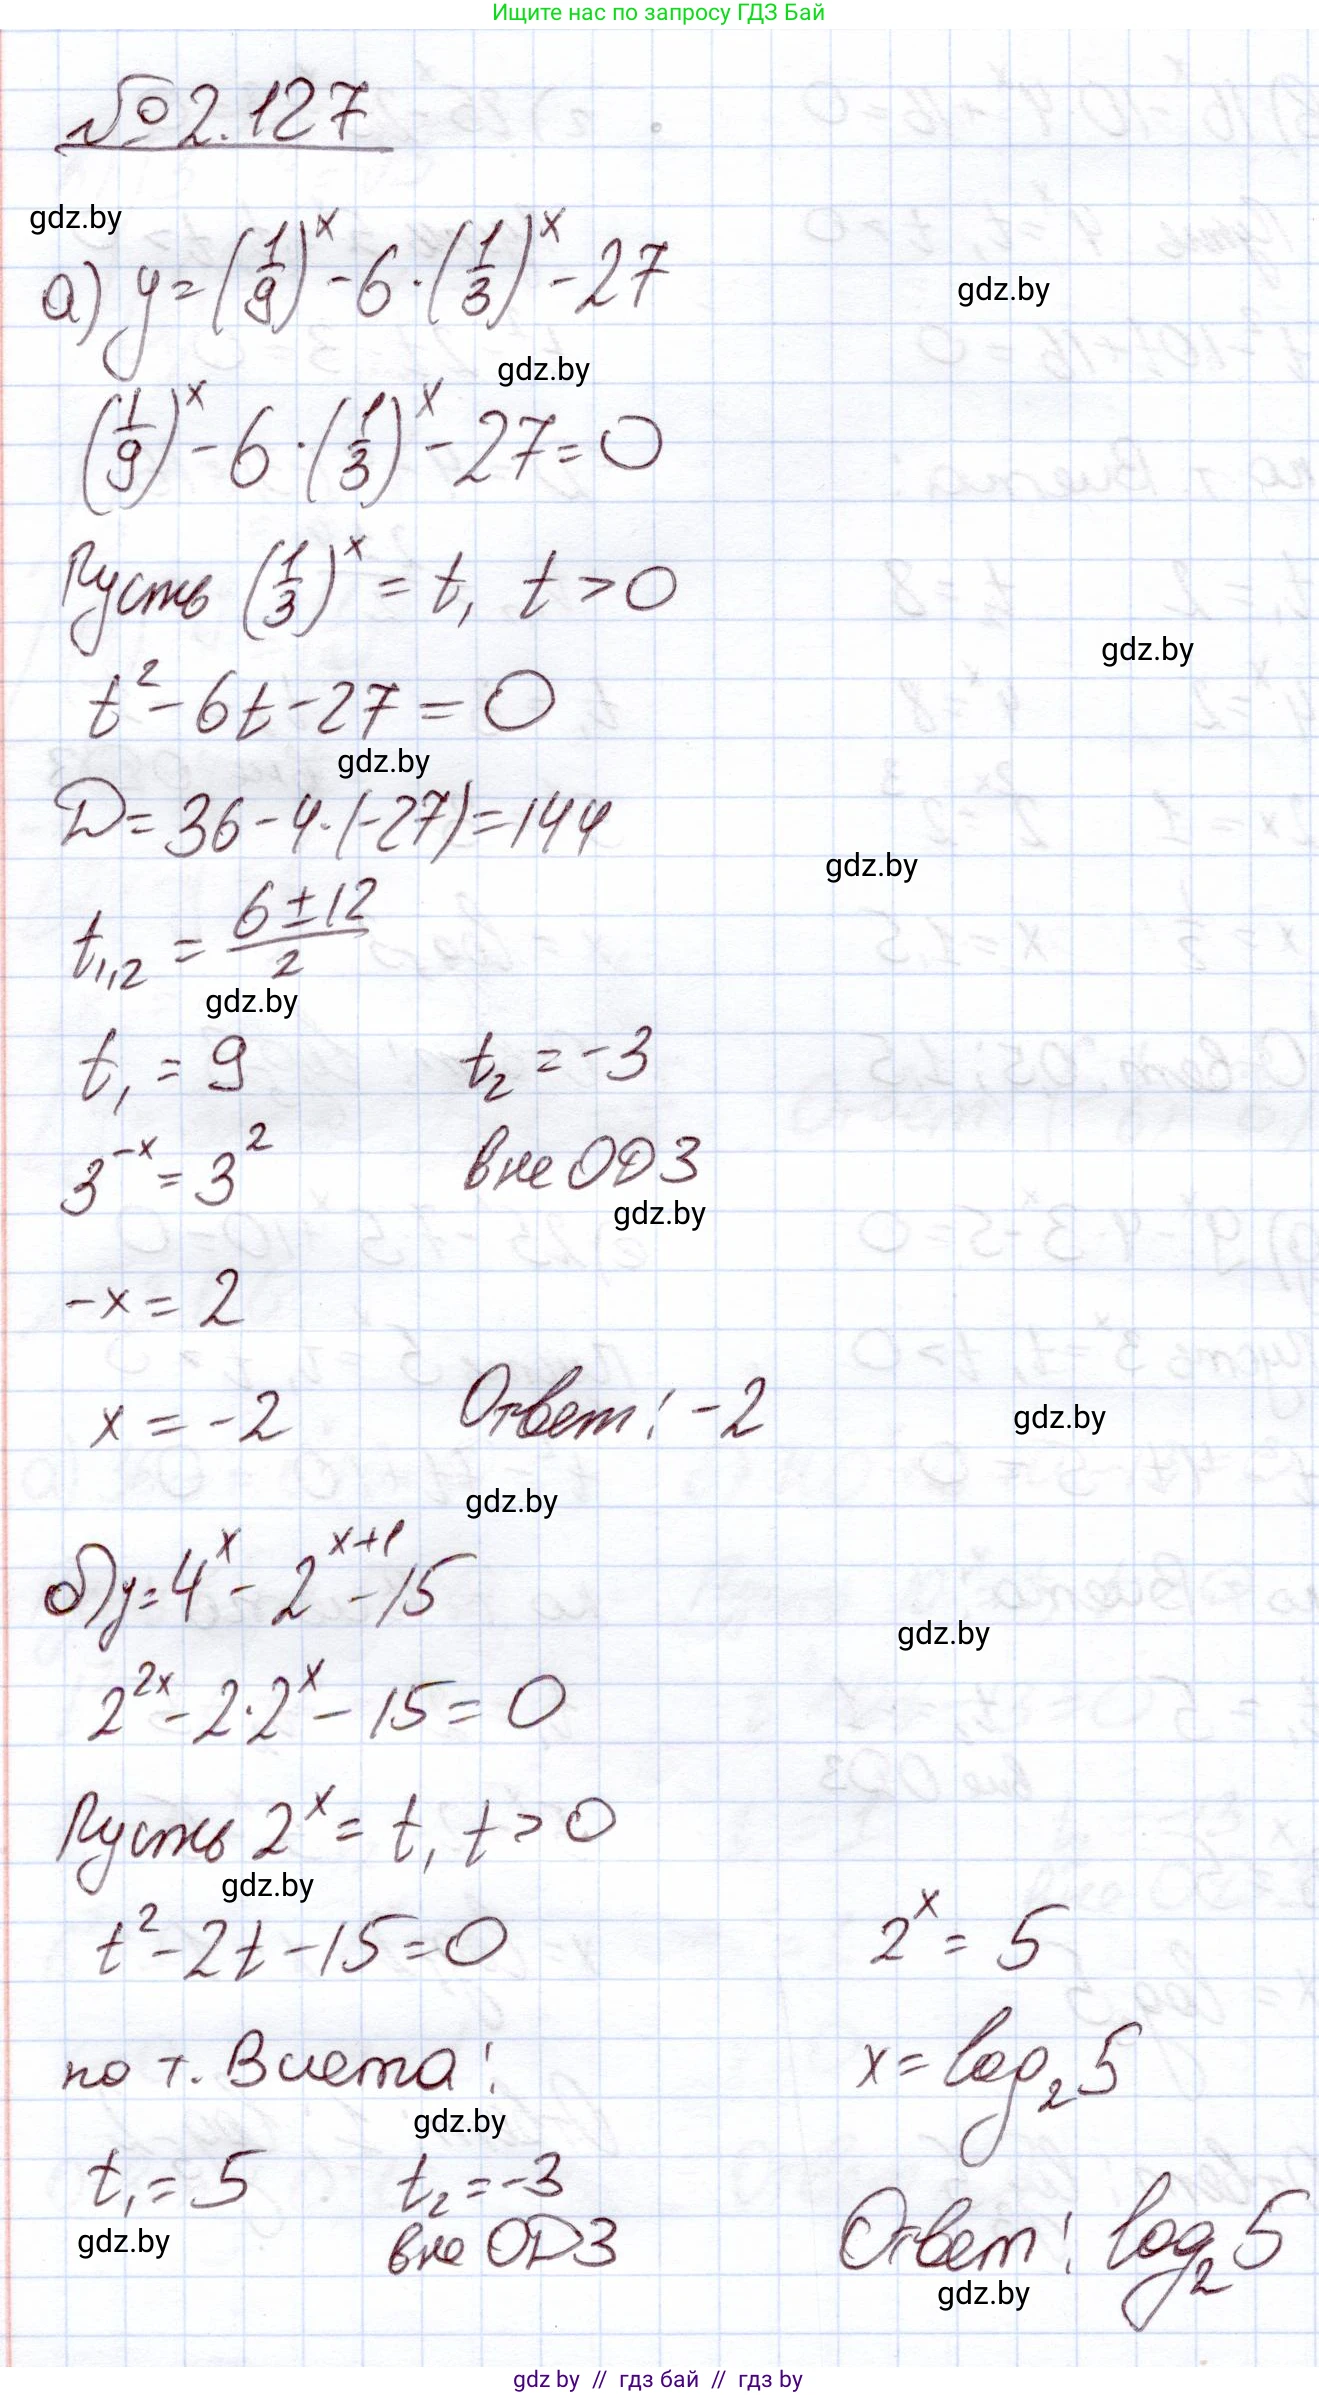 Ищите нас по запросу ГДЗ Бай
№ 2.127
gdz.by
а) y = (1/9)^x - 6 · (1/3)^x - 27
gdz.by
gdz.by
(1/9)^x - 6 · (1/3)^x - 27 = 0
Пусть (1/3)^x = t, t > 0
gdz.by
t² - 6t - 27 = 0
gdz.by
D = 36 - 4 · (-27) = 144
gdz.by
t₁,₂ = (6 ± 12)/2
gdz.by
t₁ = 9 t₂ = -3
3^-x = 3² вне ОДЗ
gdz.by
-x = 2
x = -2 Ответ: -2
gdz.by
gdz.by
б) y = 4^x - 2^x+1 - 15
gdz.by
2^2x - 2 · 2^x - 15 = 0
Пусть 2^x = t, t > 0
gdz.by
t² - 2t - 15 = 0
по т. Виета:
gdz.by
t₁ = 5 t₂ = -3
gdz.by
вне ОДЗ
2^x = 5
x = log₂5
Ответ: log₂5
gdz.by
gdz by // гдз бай // гдз by